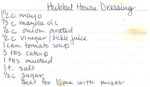 Hubbel House Dressing
1/2 c mayo
1/3 c mazola oil
1/2 c onion grated
1/2 c vinegar/ pickle juice
1 can tomato soup
3 tbs catsup
1 tbs mustard
1 t. salt
1/2 c sugar
Beat for 10 min with mixer